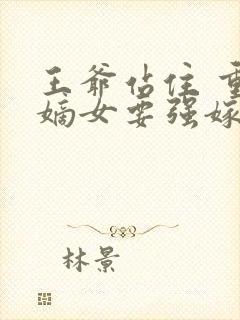 王爷站住 重
嫡女要强嫁
林景